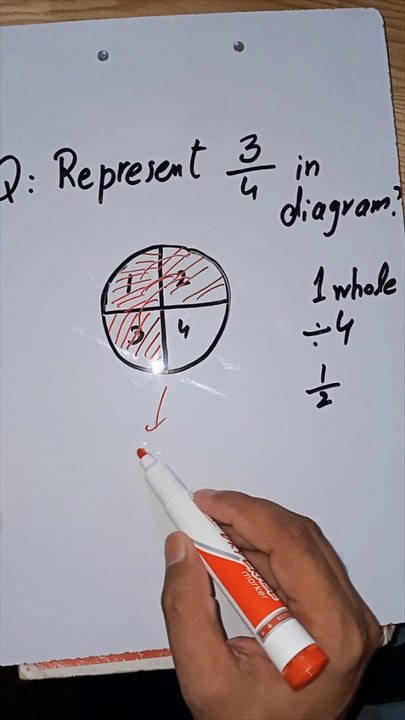 Q: Represent 3/4 in
diagram?
1 2
3 4
1 whole
÷4
1/2
marker